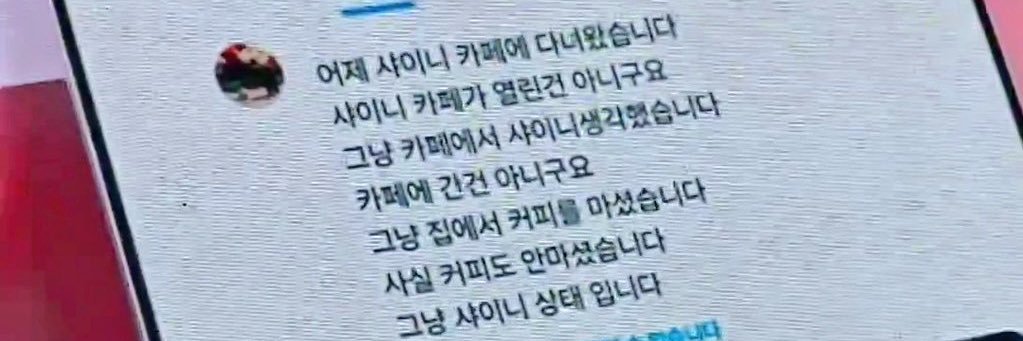 어제 샤이니 카페에 다녀왔습니다
샤이니 카페가 열린건 아니구요
그냥 카페에서 샤이니생각했습니다
카페에 간건 아니구요
그냥 집에서 커피를 마셨습니다
사실 커피도 안마셨습니다
그냥 샤이니 상태 입니다